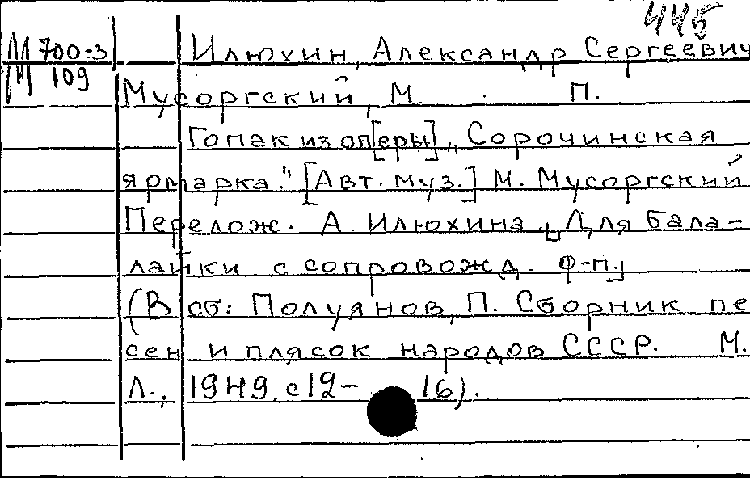 445
М 700-3 Илюхин, Александр Сергеевич
М 109
Мусоргский, М. П.
Гопак из оп[еры] „Сорочинская
ярмарка." [Авт. муз.] М. Мусоргский
Перелож. А. Илюхина [Для бала-
лайки с сопровожд. ф-п.]
(В сб: Полуянов, П. Сборник пе
сен и плясок народов СССР. М.
Л., 1949. с 12- 16).